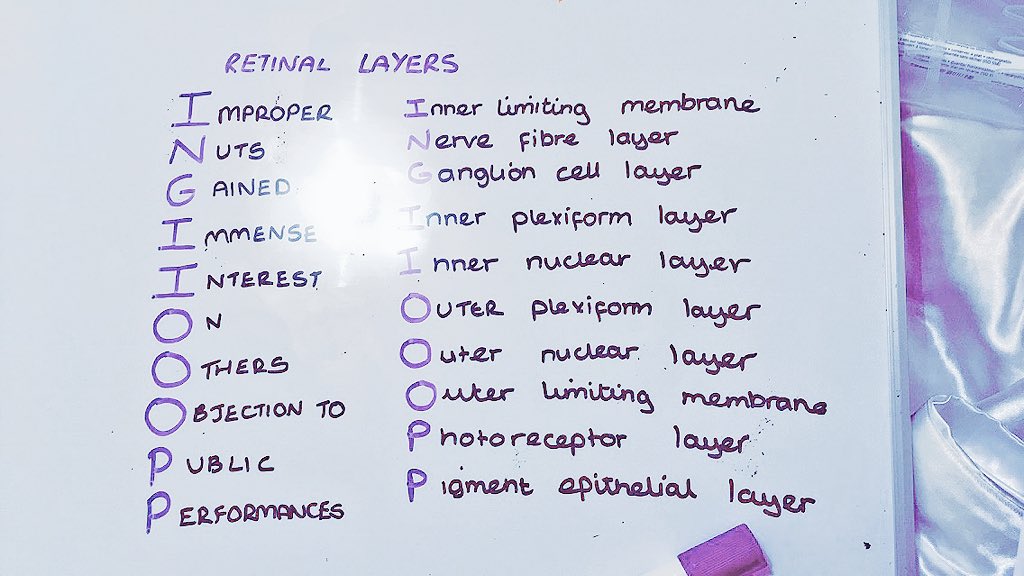 RETINAL LAYERS
IMPROPER Inner limiting membrane
NUTS Nerve fibre layer
GAINED Ganglion cell layer
IMMENSE Inner plexiform layer
INTEREST Inner nuclear layer
ON OUTER plexiform layer
OTHERS Outer nuclear layer
OBJECTION TO Outer limiting membrane
PUBLIC Photoreceptor layer
PERFORMANCES Pigment epithelial layer